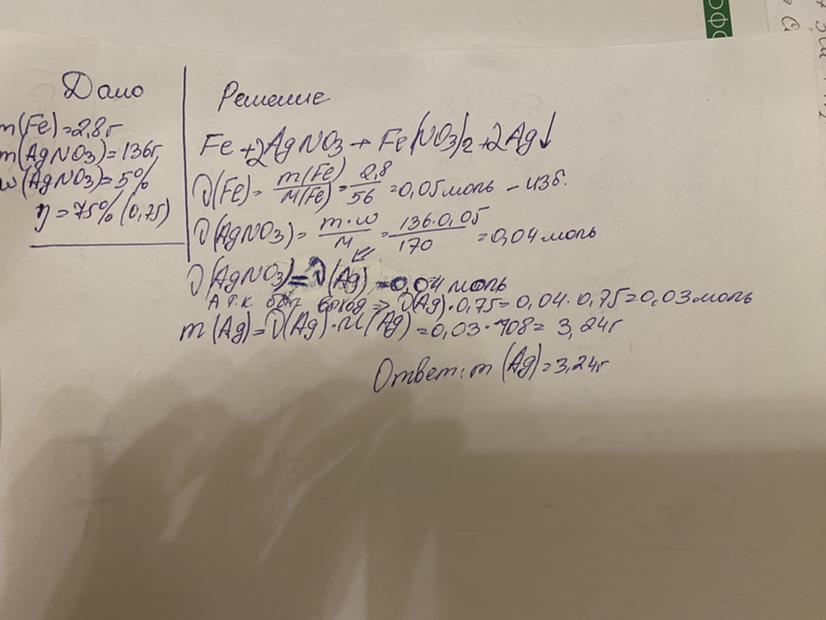 Дано
m(Fe)=2,8г
m(AgNO3)=136г
w(AgNO3)=5%
η=75% (0,75)
Решение
Fe+2AgNO3→Fe(NO3)2+2Ag↓
ν(Fe)=m(Fe)/M(Fe)=2,8/56=0,05моль – изб.
ν(AgNO3)=m·w/M=136·0,05/170=0,04моль
ν(AgNO3)=ν(Ag)=0,04моль
А т.к. был выход => ν(Ag)·0,75=0,04·0,75=0,03моль
m(Ag)=ν(Ag)·M(Ag)=0,03·108=3,24г
Ответ: m(Ag)=3,24г